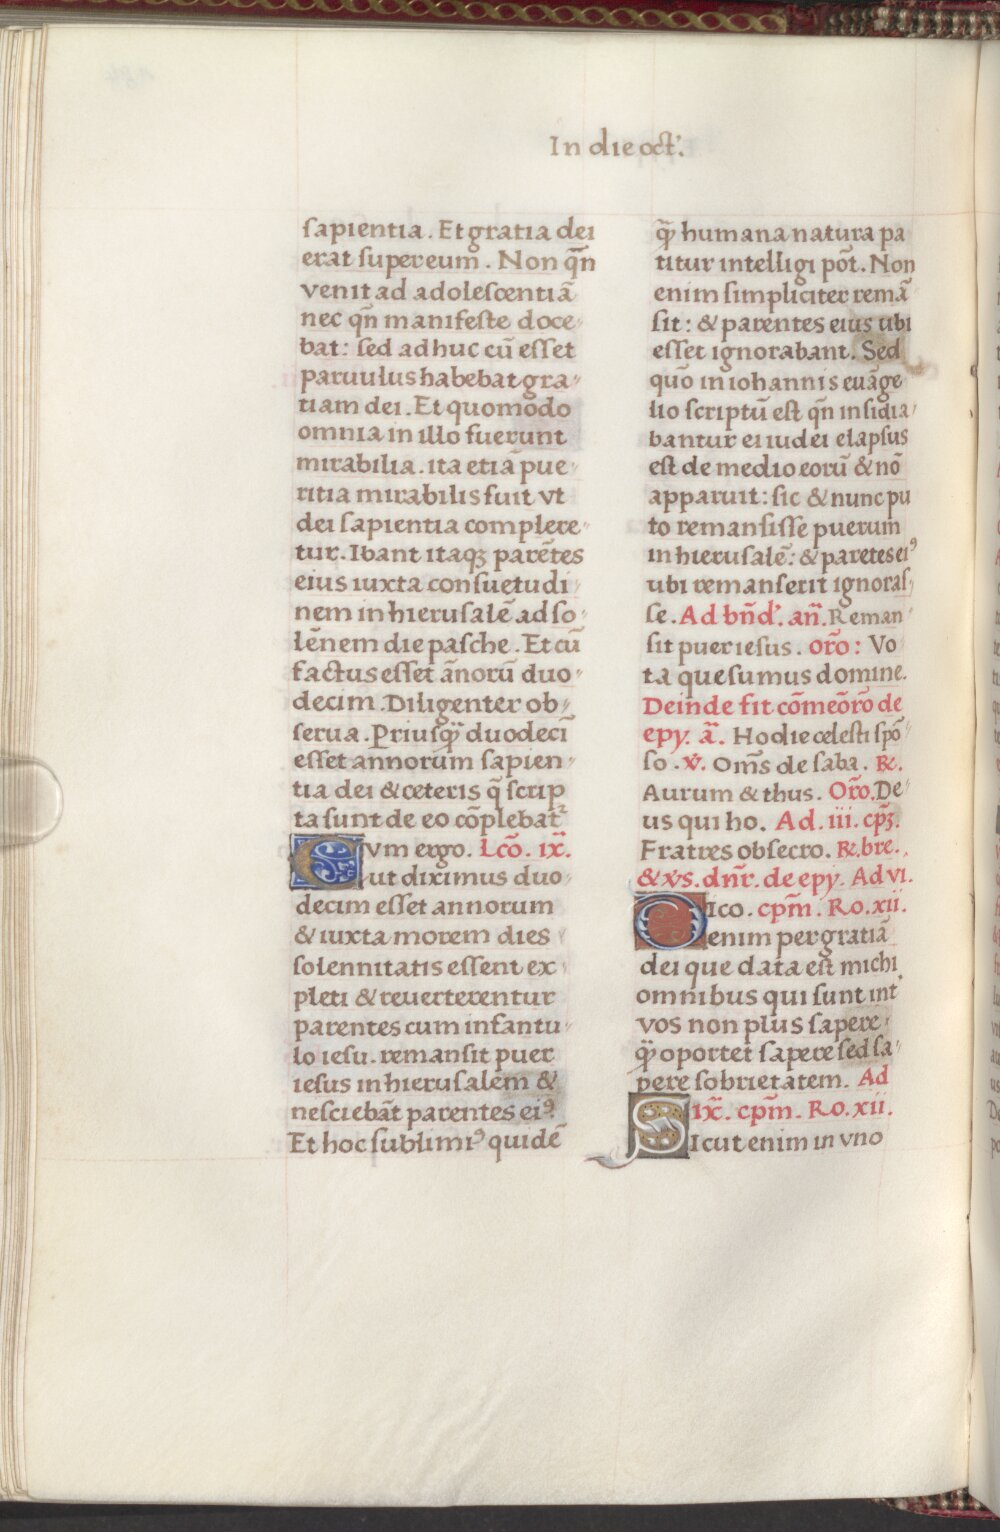 In die oct'.
sapientia. Et gratia dei
erat super eum. Non qn̄
venit ad adolescentiā
nec qn̄ manifeste doce-
bat: sed adhuc cū esset
paruulus habebat gra-
tiam dei. Et quomodo
omnia in illo fuerunt
mirabilia. ita etiā pue-
ritia mirabilis fuit vt
dei sapientia complere-
tur. Ibant itaqꝫ parētes
eius iuxta consuetudi-
nem in hierusalē ad so-
lēnem die pasche. Et cū
factus esset āñorū duo-
decim. Diligenter ob-
serua. Priusꝙ̄ duodecī
esset annorum sapien-
tia dei & ceteris q̄ scrip
ta sunt de eo cōplebat᷑
Cvm ergo. Lcō. ix̄.
ut diximus duo-
decim esset annorum
& iuxta morem dies
solennitatis essent ex-
pleti & reuerterentur
parentes cum infantu-
lo iesu. remansit puer
iesus in hierusalem &
nesciebāt parentes eiꝰ.
Et hoc sublimiꝰ quidē
ꝙ̄ humana natura pa
titur intelligi pōt. Non
enim simpliciter remā-
sit: & parentes eius ubi
esset ignorabant. Sed
quō in iohannis euāge-
lio scriptū est qn̄ insidia-
bantur ei iudei elapsus
est de medio eorū & nō
apparuit: sic & nunc pu
to remansisse puerum
in hierusalē: & paretes eiꝰ
ubi remanserit ignoras-
se. Ad bn̄d'. an̄. Reman-
sit puer iesus. orō: Vo
ta quesumus domine.
Deinde fit cōmeōrō de
epy. ā. Hodie celesti spō-
so. v̇. Om̄s de saba. ℞.
Aurum & thus. Orō. De-
us qui ho. Ad. iii. cpꝫ̄.
Fratres obsecro. ℞. bre.
& v̇s. dnr̄. de epy. Ad vi.
Dico. cpm̄. Ro. xii.
enim per gratiā
dei que data est michi
omnibus qui sunt int'
vos non plus sapere
ꝙ̄ oportet sapere sed sa-
pere sobrietatem. Ad
ix̄. cpm̄. Ro. xii.
Sicut enim in vno